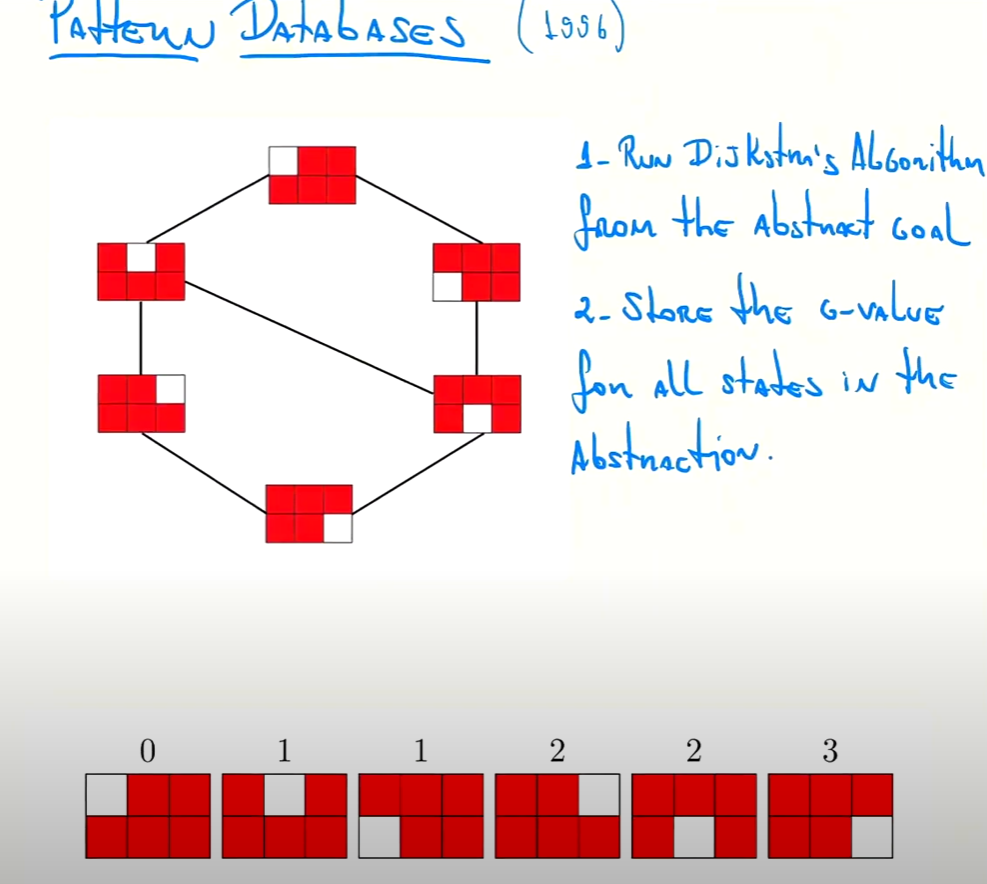 Pattern Databases (1996)
1- Run Dijkstra's Algorithm
from the abstract goal
2- Store the g-value
for all states in the
abstraction.
0 1 1 2 2 3